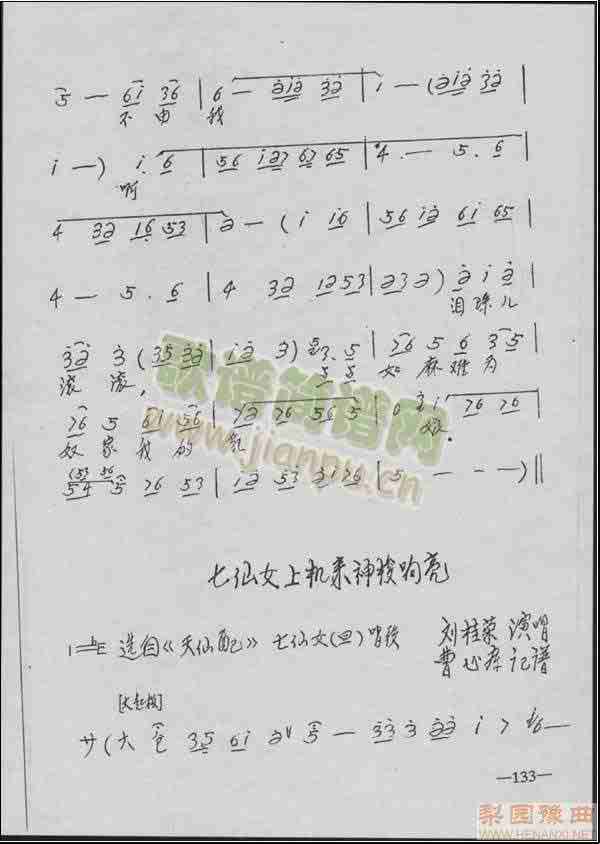 5 — 6i 36 | 6 — 2i2 32 | i — (2i2 32 |
不 由 我
i —) i. 6 | 56 i27 67 65 | 4. — 5. 6 |
啊
4 32 16 53 | 2 — (i i6 | 56 i2 6i 65 |
4 — 5. 6 | 4 32 12 53 | 2 3 2) 2 i 2 |
泪 珠 儿
32 3 (35 32 | i2 3) 3. 5 | 76 5 6 35 |
滚 滚, 如 麻 难 为
76 5 6i 56 | 72 76 56 5 | 0 2 i | 76 76 |
奴 家 我 的 娘。
54 5 76 53 | 12 53 2i76 | 5 — — —) ||
七仙女上机来神梭响亮
1=bE 选自《天仙配》 七仙女(四)唱段 刘桂荣 演唱
记谱
サ(大 仓 35 6i 2 5 — 33 3 22 i 7 6 —
—133—
歌谱简谱网
www.jianpu.cn
梨园豫曲
WWW.HENANXI.NET